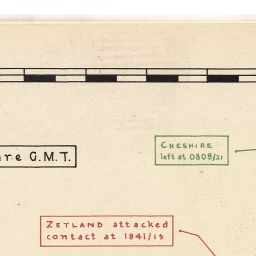 CHESHIRE
left at 0808/21
are G.M.T.
ZETLAND attacked
contact at 1841/15